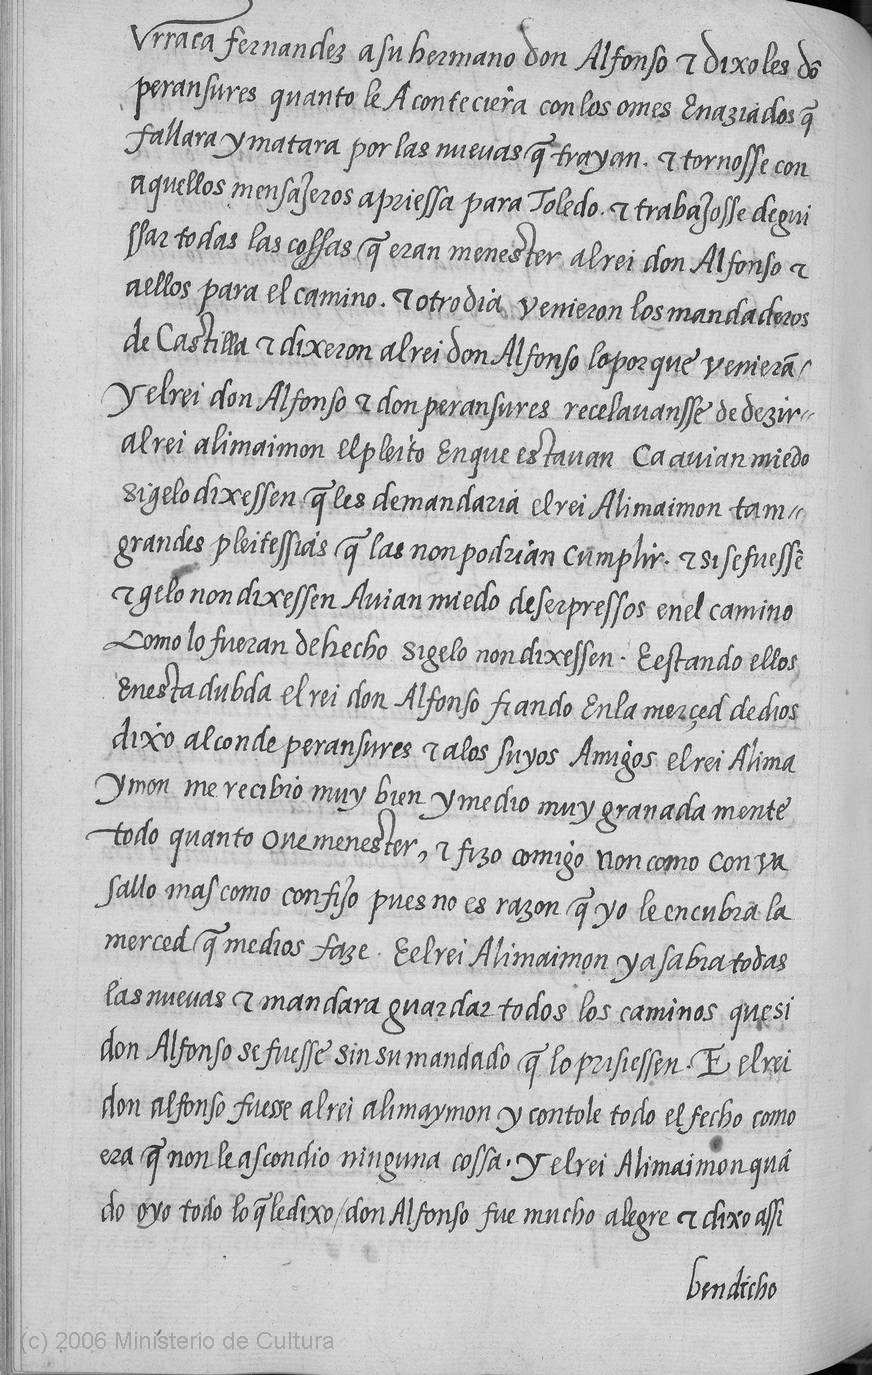 Vrraca fernandez a su hermano don Alfonso τ dixoles dō
peransures quanto le Aconteciera con los omes Enaziados q̄
fallara y matara por las nuevas q̄ trayan. τ tornosse con
aquellos mensajeros apriessa para Toledo. τ trabajosse de gui
ssar todas las cossas q̄ eran menester al rei don Alfonso τ
aellos para el camino. τ otro dia venieron los mandaderos
de Castilla τ dixeron al rei don Alfonso lo por que venierā/
Y el rei don Alfonso τ don peransures recelavansse de dezir//
al rei alimaimon el pleito En que estavan Ca avian miedo
si gelo dixessen q̄ les demandaria el rei Alimaimon tam//
grandes pleitessias q̄ las non podrian cumplir. τ si se fuesse
τ gelo non dixessen Avian miedo de ser pressos en el camino
Como lo fueran de hecho si gelo non dixessen. E estando ellos
En esta dubda el rei don Alfonso fiando En la merçed de dios
dixo al conde peransures τ a los suyos Amigos el rei Alima
ymon me recibio muy bien y me dio muy granada mente
todo quanto ove menester, τ fizo comigo non como con va
sallo mas como con fijo pues no es razon q̄ yo le encubra la
merced q̄ me dios faze. E el rei Alimaimon ya sabra todas
las nuevas τ mandara guardar todos los caminos que si
don Alfonso se fuesse sin su mandado q̄ lo prisiessen. E el rei
don alfonso fuesse al rei alimaymon y contole todo el fecho como
era q̄ non le ascondio ninguna cossa. Y el rei Alimaimon quā
do oyo todo lo q̄ le dixo / don Alfonso fue mucho alegre τ dixo assi
bendicho
(c) 2006 Ministerio de Cultura